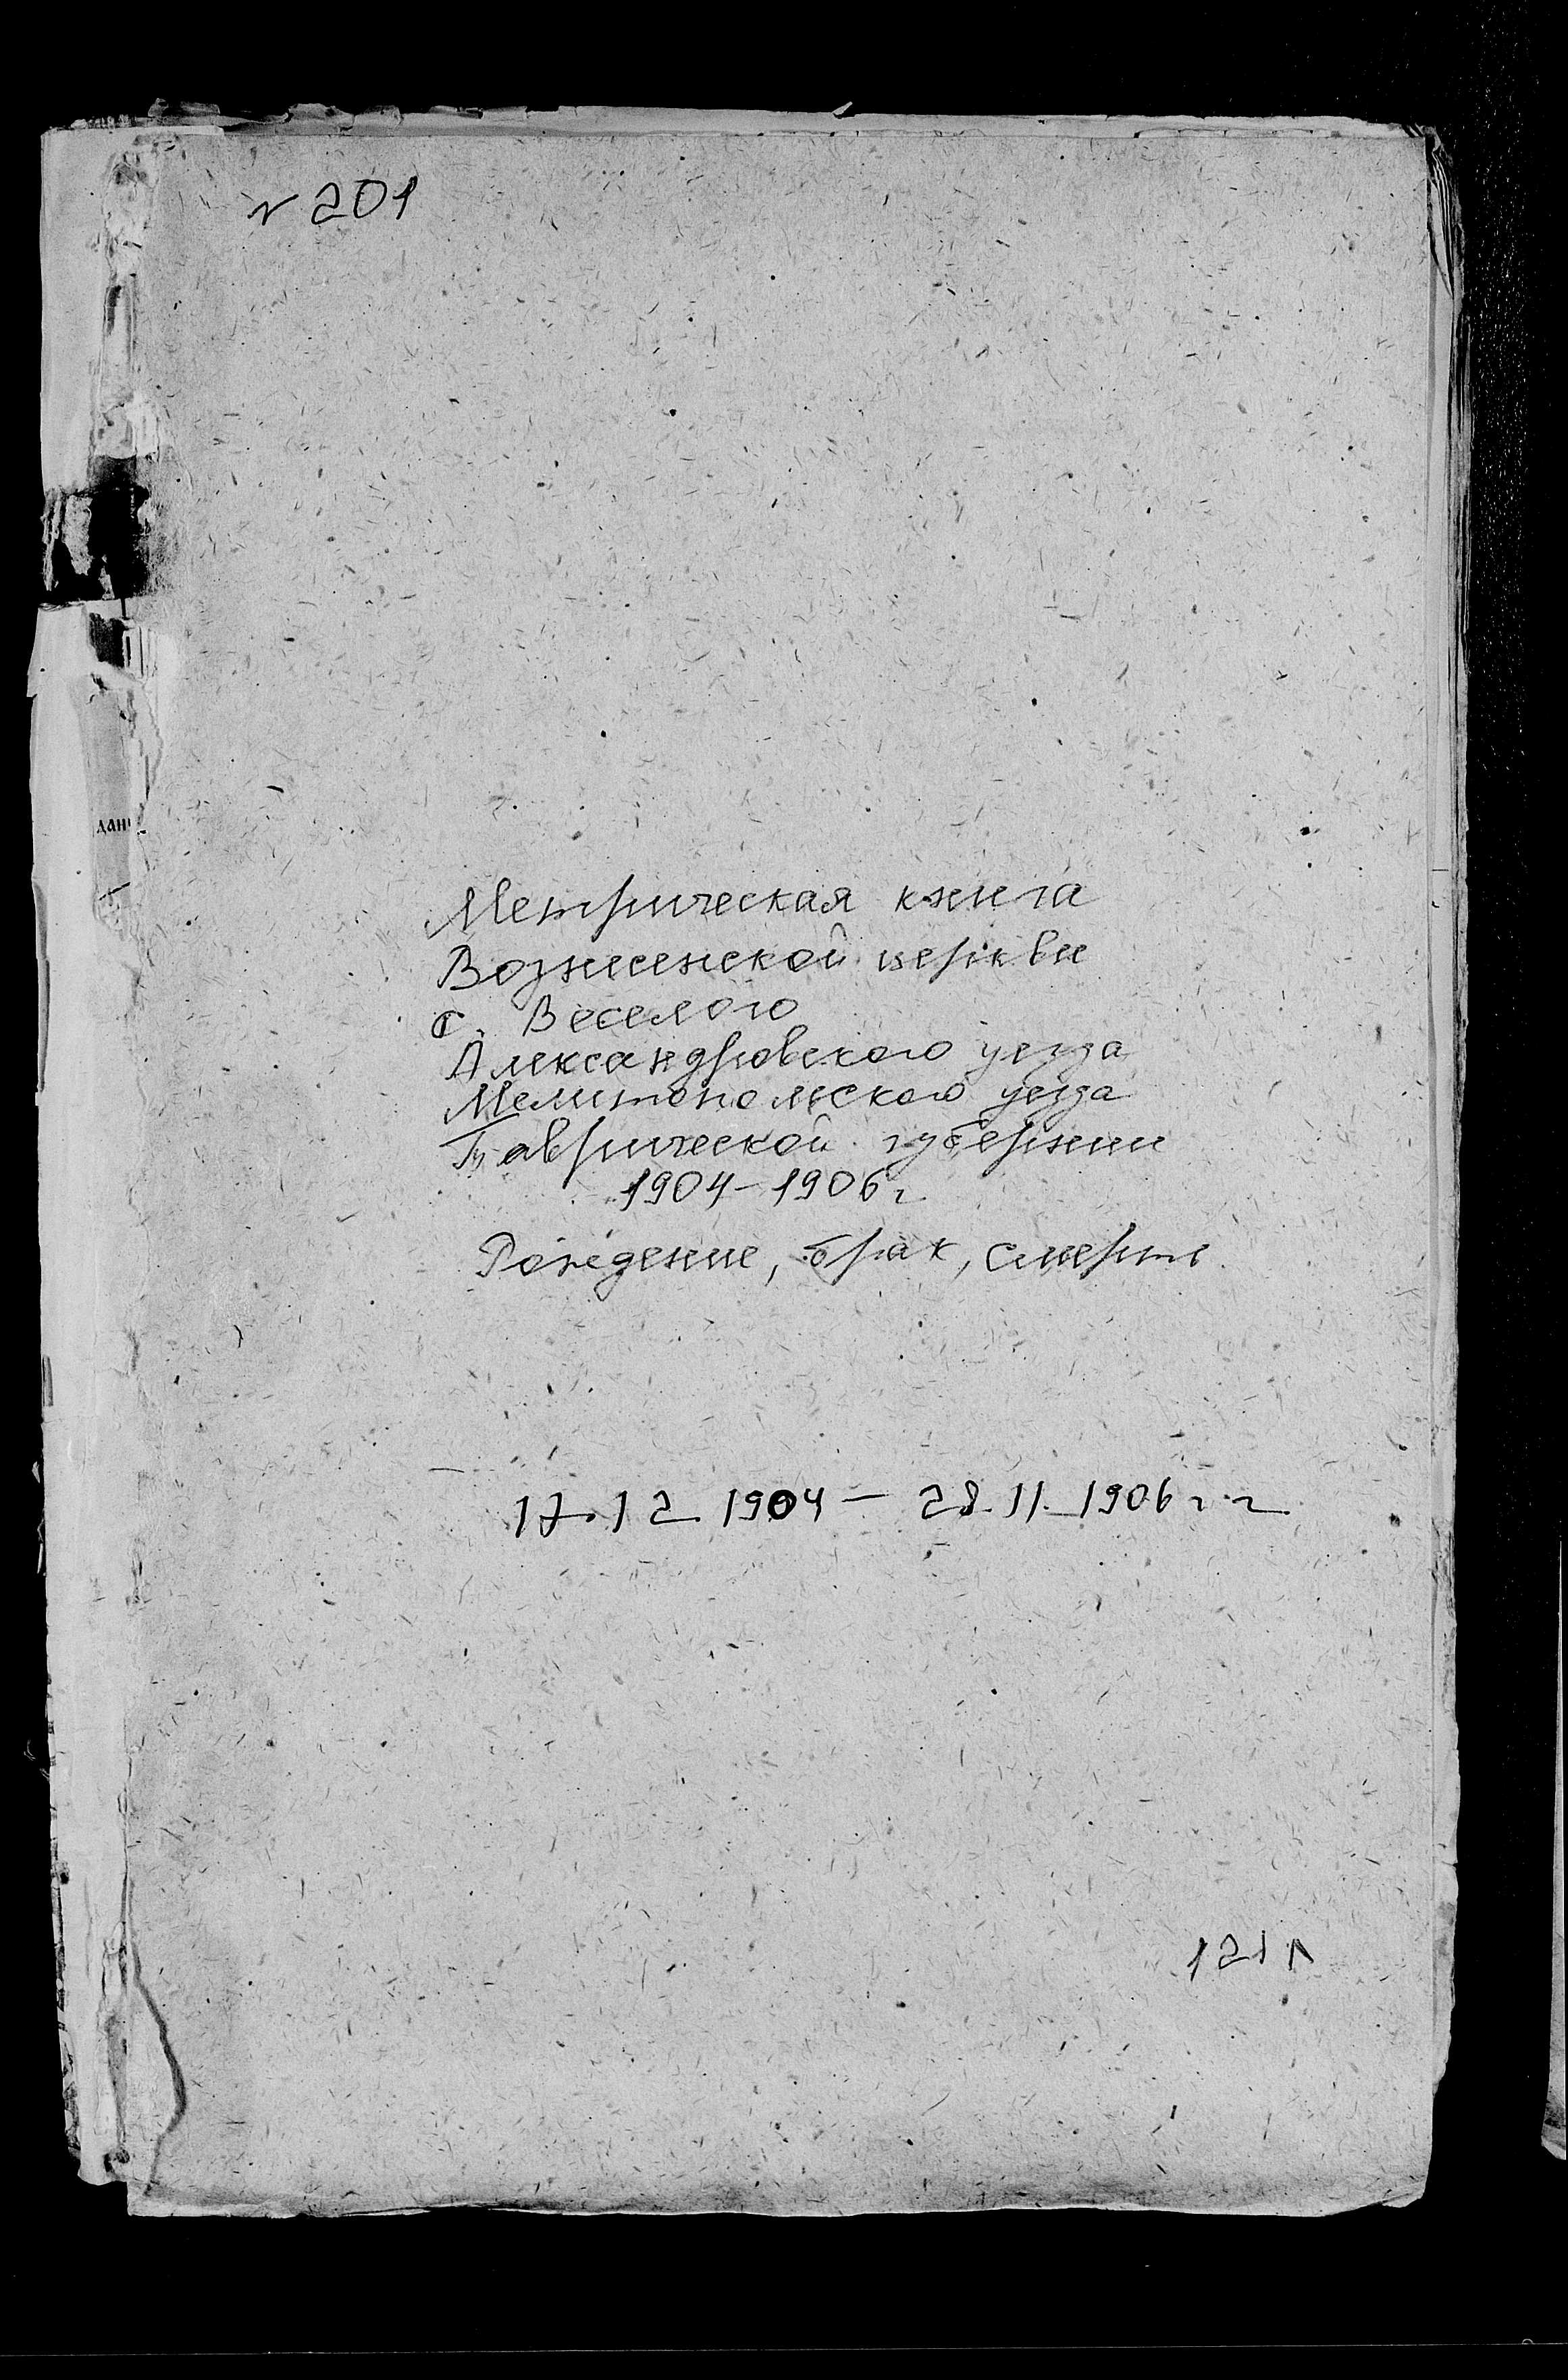 № 201
дан
Метрическая книга
Вознесенской церкви
с. Веселого
Александровского уезда
Мелитопольского уезда
Таврической губернии
1904-1906 г.
Рождение, брак, смерть
17.12 1904 - 28.11.1906 г.г.
121 л